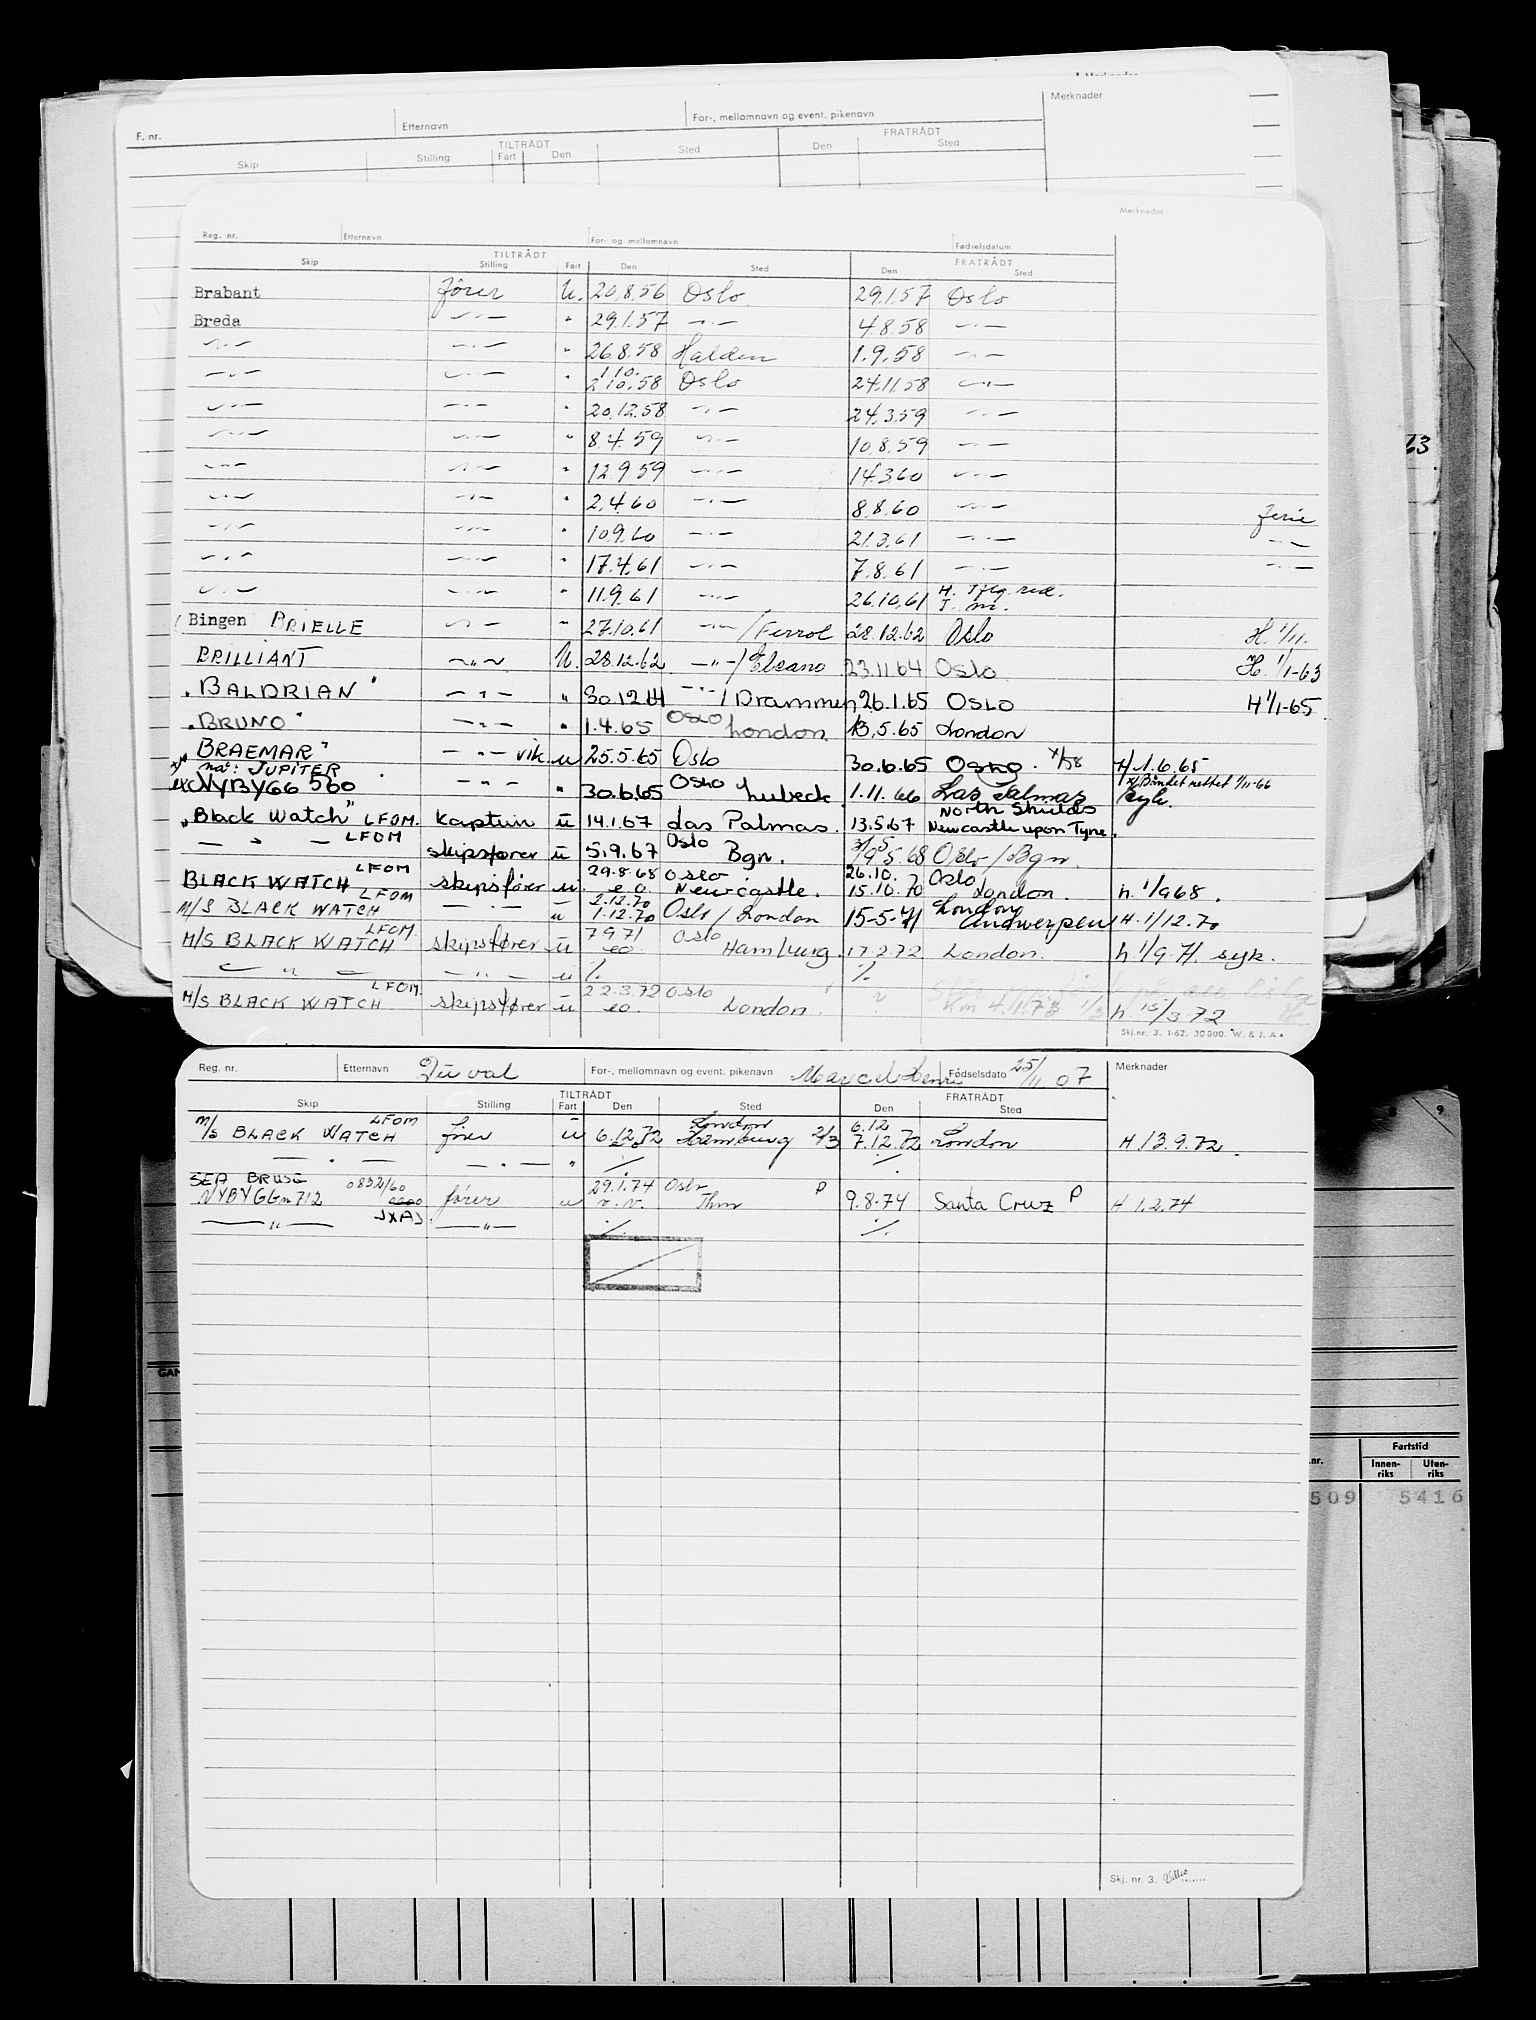 Merknader
F. nr. Etternavn For-, mellomnavn og event. pikenavn
TILTRÅDT FRATRÅDT
Skip Stilling Fart Den Sted Den Sted
63
Merknader
Reg. nr. Etternavn For- og mellomnavn Fødselsdatum
TILTRÅDT FRATRÅDT
Skip Stilling Fart Den Sted Den Sted
Brabant fører U. 20.8.56 Oslo 29.1.57 Oslo
Breda —"— " 29.1.57 —"— 4.8.58 —"—
—"— —"— " 26.8.58 Halden 1.9.58 —"—
1.10.
—"— —"— " 2.10.58 Oslo 24.11.58 —"—
—"— —"— " 20.12.58 —"— 24.3.59 —"—
—"— —"— " 8.4.59 —"— 10.8.59 —"—
—"— —"— " 12.9.59 —"— 14.3.60 —"—
—"— —"— " 2.4.60 —"— 8.8.60 —"— ferie
—"— —"— " 10.9.60 —"— 21.3.61 —"— —"—
—"— —"— " 17.4.61 —"— 7.8.61 —"— —"—
—"— —"— " 11.9.61 —"— 26.10.61
Bingen BRIELLE —"— " 27.10.61 —"—/Ferrol 28.12.62 Oslo H. 1/11.
BRILLIANT —"— U. 28.12.62 —"—/Elcano 23.11.64 Oslo H. 1/1-63
"BALDRIAN" —"— " 30.12.64 —"—/Drammen 26.1.65 OSLO H 1/1-65
"BRUNO" —"— " 1.4.65 Oslo London 13.5.65 London
"BRAEMAR" —"— vik u 25.5.65 Oslo 30.6.65 OSLO H 1.6.65
nå: JUPITER
NYBYGG 560 —"— " 30.6.65 Oslo Lubeck 1.11.66 Las Palmas syk.
"Black Watch" LFOM. kaptein u 14.1.67 Las Palmas. 13.5.67 North Shields
Newcastle upon Tyne
— " — LFOM skipsfører u 5.9.67 Oslo Bgn. 9.5.68 Oslo/Bgn.
LFOM 29.8.68 Oslo 26.10. Oslo
BLACK WATCH skipsfører u. e.o. Newcastle. 15.10.70 London h. 1/9 68.
LFOM 2.12.70 London
M/S BLACK WATCH — . — u 1.12.70 Oslo / London 15-5-71 Antwerpen H. 1/12.70
LFOM. 7 9 71 Oslo
M/S BLACK WATCH skipsfører u eo. Hamburg. 17.2.72 London. h. 1/9-71. syk.
— " — — " — u ·/. ·/.
LFOM. 22.3.72 Oslo
M/S BLACK WATCH skipsfører u eo. London. ? Km 4.11.73 h 15/3 72
Skj.nr. 3. 1-62. 30 000. W. & J. A.
Reg. nr. Etternavn Duval For-, mellomnavn og event. pikenavn Marcel Henri Fødselsdato 25/11 07 Merknader
TILTRÅDT FRATRÅDT
Skip Stilling Fart Den Sted Den Sted
LFOM London 6.12
M/S BLACK WATCH fører u 6.12.72 Hamburg 2/3 7.12.72 London H. 13.9.72.
— . — — . — " ·/. ·/.
SEA BRUSE 0832/60 29.1.74 Oslo P
NYBYGG nr 712 fører u v.v. Thm 9.8.74 Santa Cruz P H 1.2.74
— " — JXAJ. — " — ·/. ·/.
Skj. nr. 3.
8 9
GAN
nr. Fartstid
Innen-riks Uten-riks
509 5416